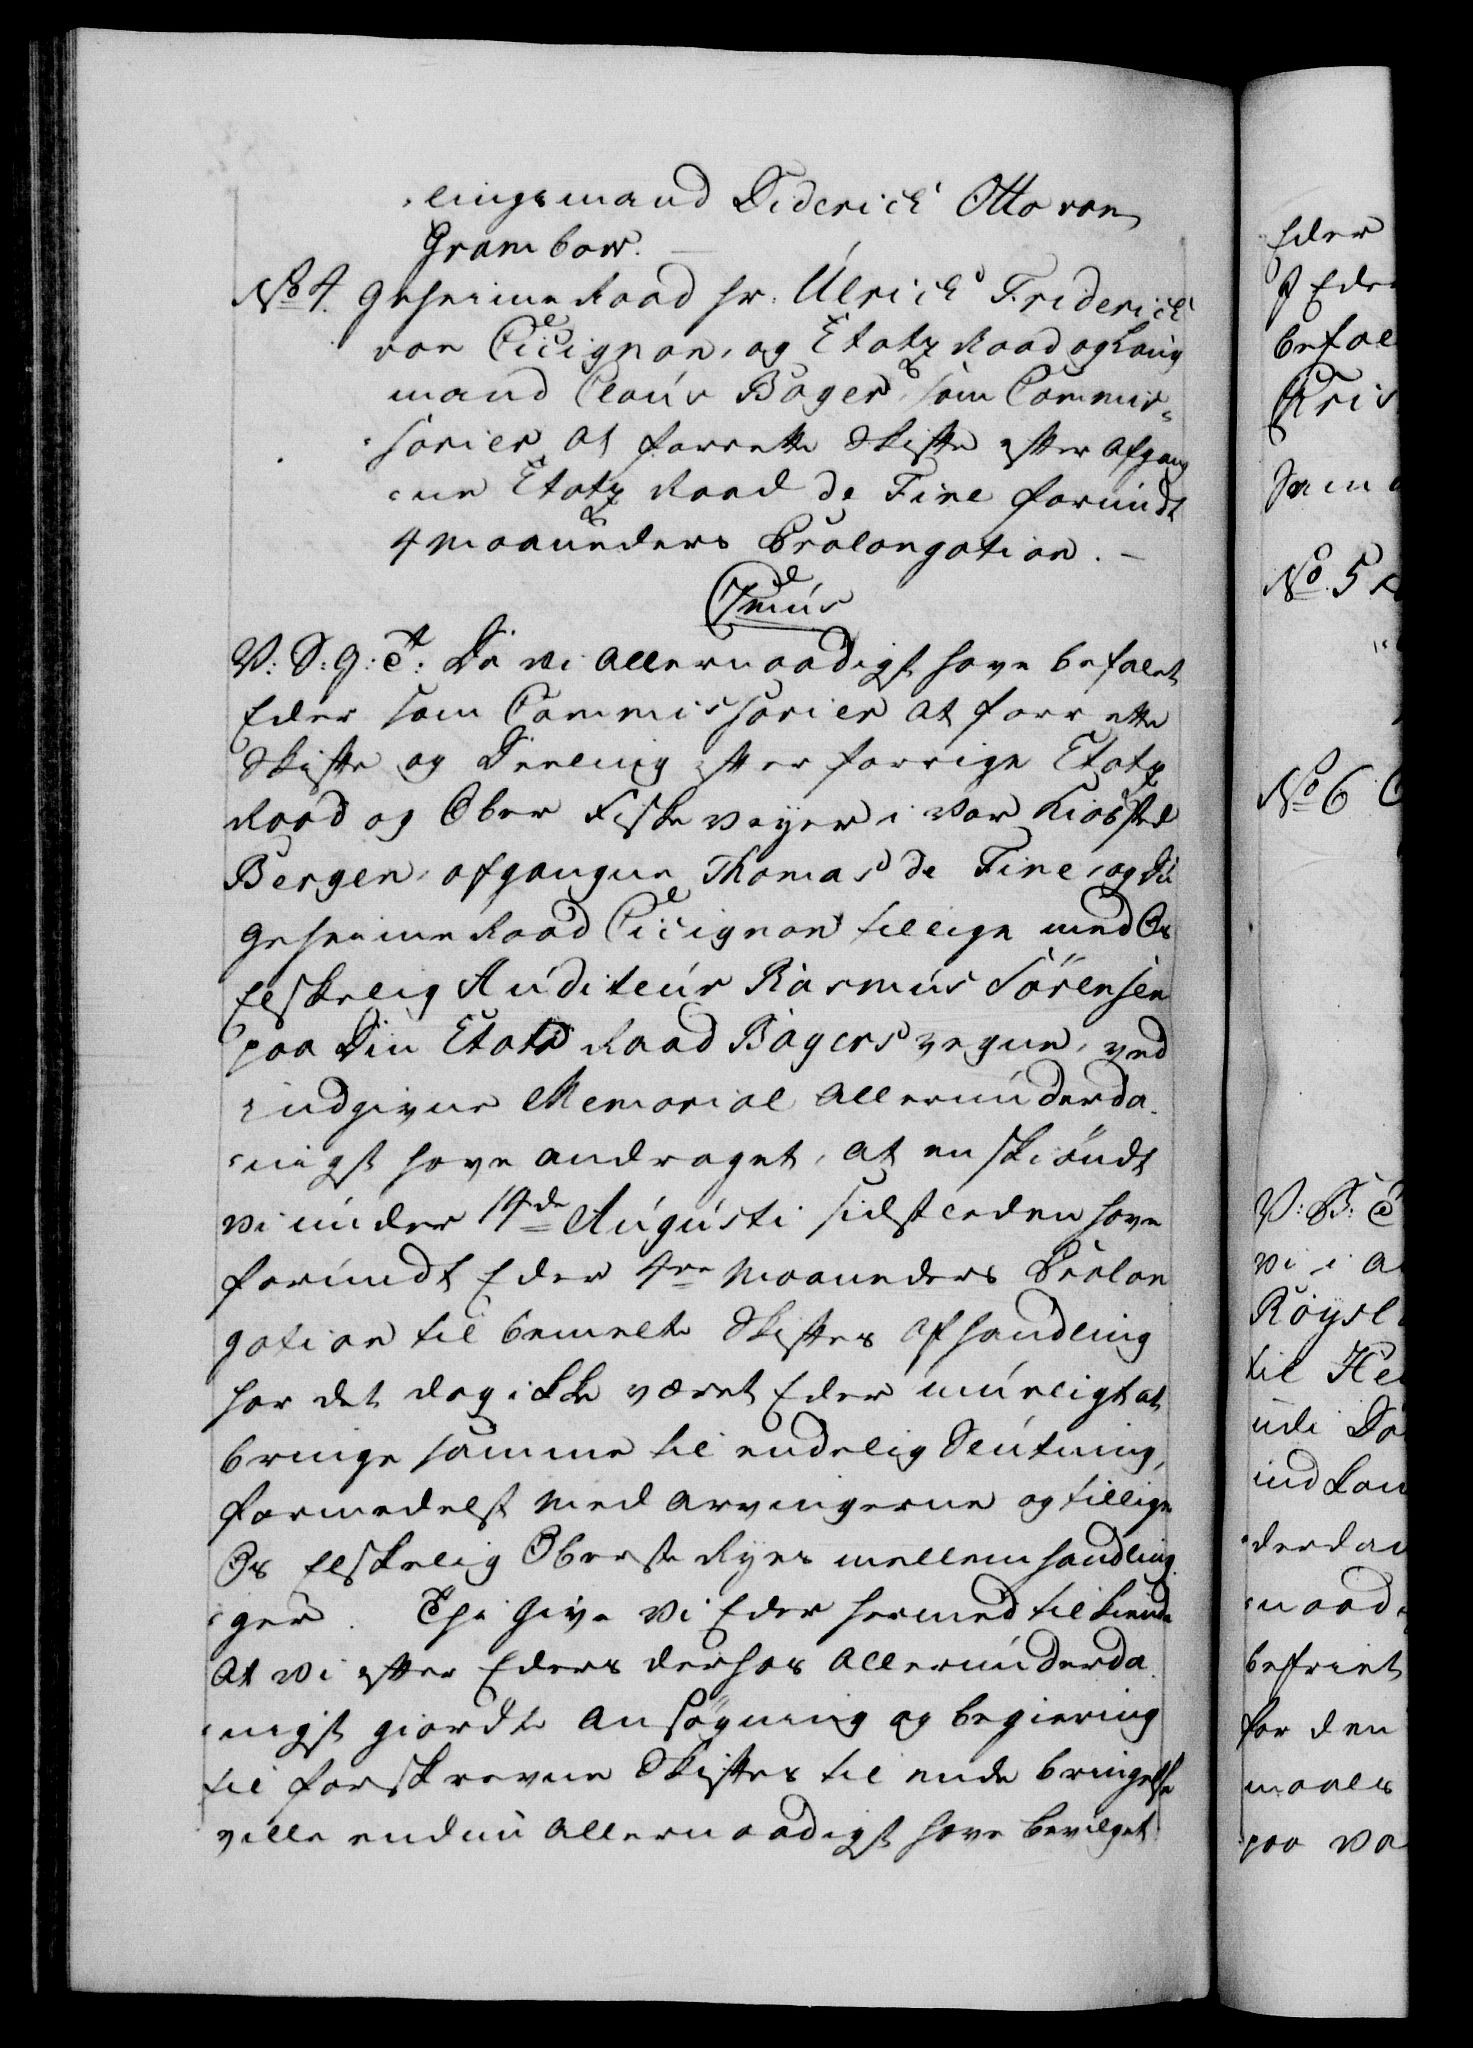 lingsmand Diderich Otto von
Grambow.
No 4. Geheime Raad hr: Ulrich Friderich
von Cicignon, og Etatz Raad og Laug
mand Claus Bager, som Commis=
sarier at forrette Skifte efter afgang
ne Etatz Raad de Fine forundt
4 Maaneders Prolongation. –
V: S: G: T: Da vi allernaadigst have befalet
Eder som Commissarier at forrette
Skifte og Deeling efter forrige Etatz
Raad og Ober Fiske veyer i vor Kiøbsted
Bergen, afgangne Thomas de Fine, og Du
Geheime Raad Cicignon tillige med Os
Elskelig Auditeur Rasmus Sörensen
paa Din Etatz Raad Bagers vegne, ved
indgivne Memorial allerunderda
nigst have andraget, at enskiöndt
vi under 14de Augusti sidstleden have
forundt Eder 4re Maaneders Prolon
gation til bemelte Skiftes afhandling
har det dog ikke været Eder mueligt at
bringe samme til endelig Slutning,
formedelst med arvingerne og tillige
Os Elskelig Oberste Ryes mellemhandlin
ger. Thi give vi Eder hermed tilkiende
at vi efter Eders derhos allerunderda
nigst giorde ansøgning og begiering
til forskrevne Skiftes til ende bringelse
ville endnu allernaadigst have bevilget
Eder
befal
No 5
No 6
til
udi
indkom
derdan
naad
befriet
for den
maales
paa vo